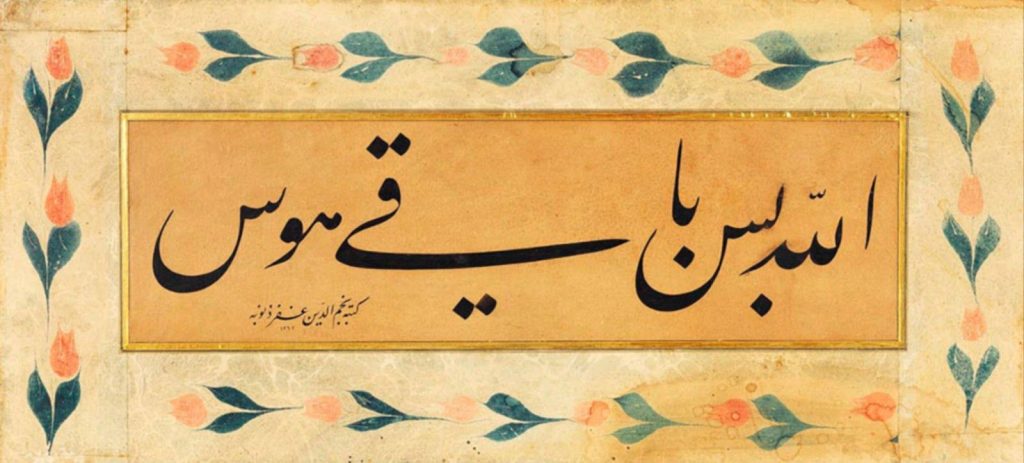 الله بس باقی هوس
کتبه نجم الدین غفر ذنوبه